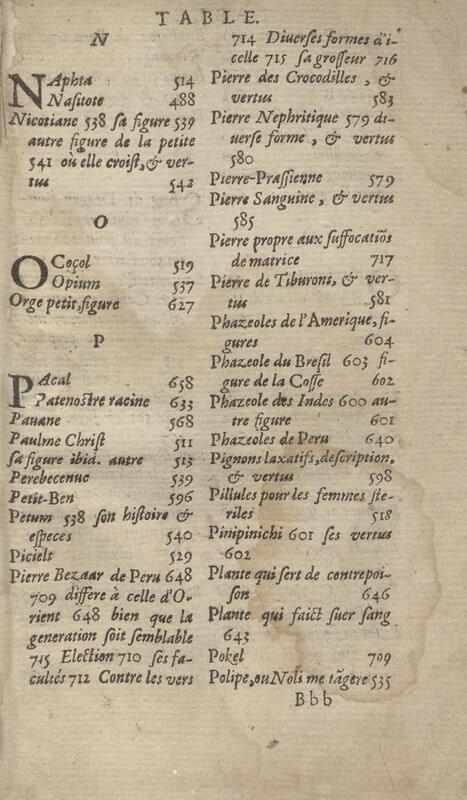 TABLE.
N
NAphta 514
Nasitote 488
Nicotiane 538 sa figure 539
autre figure de la petite
541 où elle croist, & ver-
tus 542
O
OCoçol 519
Opium 537
Orge petit, figure 627
P
PAcal 658
Patenostre racine 633
Pauane 568
Paulme Christ 511
sa figure ibid. autre 513
Perebecenuc 539
Petit-Ben 596
Petum 538 son histoire &
especes 540
Picielt 529
Pierre Bezaar de Peru 648
709 differe à celle d'O-
rient 648 bien que la
generation soit semblable
715 Election 710 ses fa-
cultés 712 Contre les vers
714 Diuerses formes d'i-
celle 715 sa grosseur 716
Pierre des Crocodilles, &
vertus 583
Pierre Nephritique 579 di-
uerse forme, & vertus
580
Pierre-Prassienne 579
Pierre Sanguine, & vertus
585
Pierre propre aux suffocatiõs
de matrice 717
Pierre de Tiburons, & ver-
tus 581
Phazeoles de l'Amerique, fi-
gures 604
Phazeole du Bresil 603 fi-
gure de la Cosse 602
Phazeole des Indes 600 au-
tre figure 601
Phazeoles de Peru 640
Pignons laxatifs, description.
& vertus 598
Pillules pour les femmes ste-
riles 518
Pinipinichi 601 ses vertus
602
Plante qui sert de contrepoi-
son 646
Plante qui faict suer sang
643
Pokel 709
Polipe, ou Noli me tãgere 535
Bbb